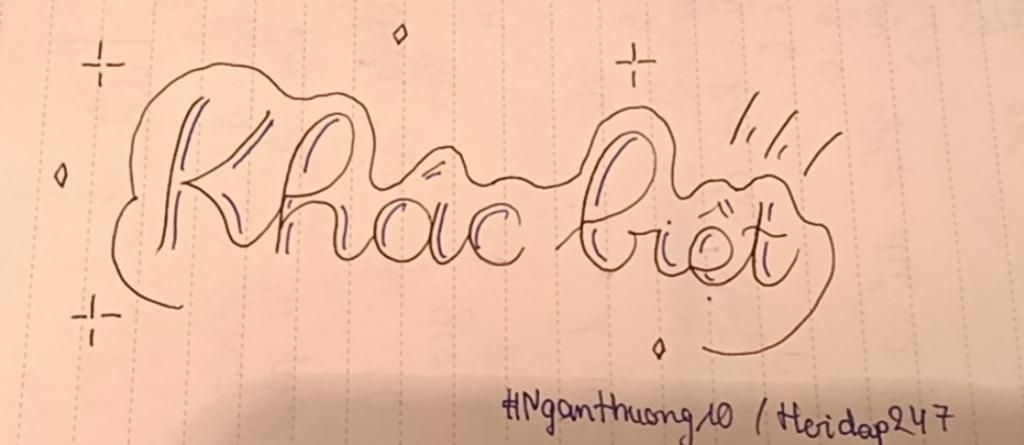 Khác biệt
#Nganthuong10 / Heidap247